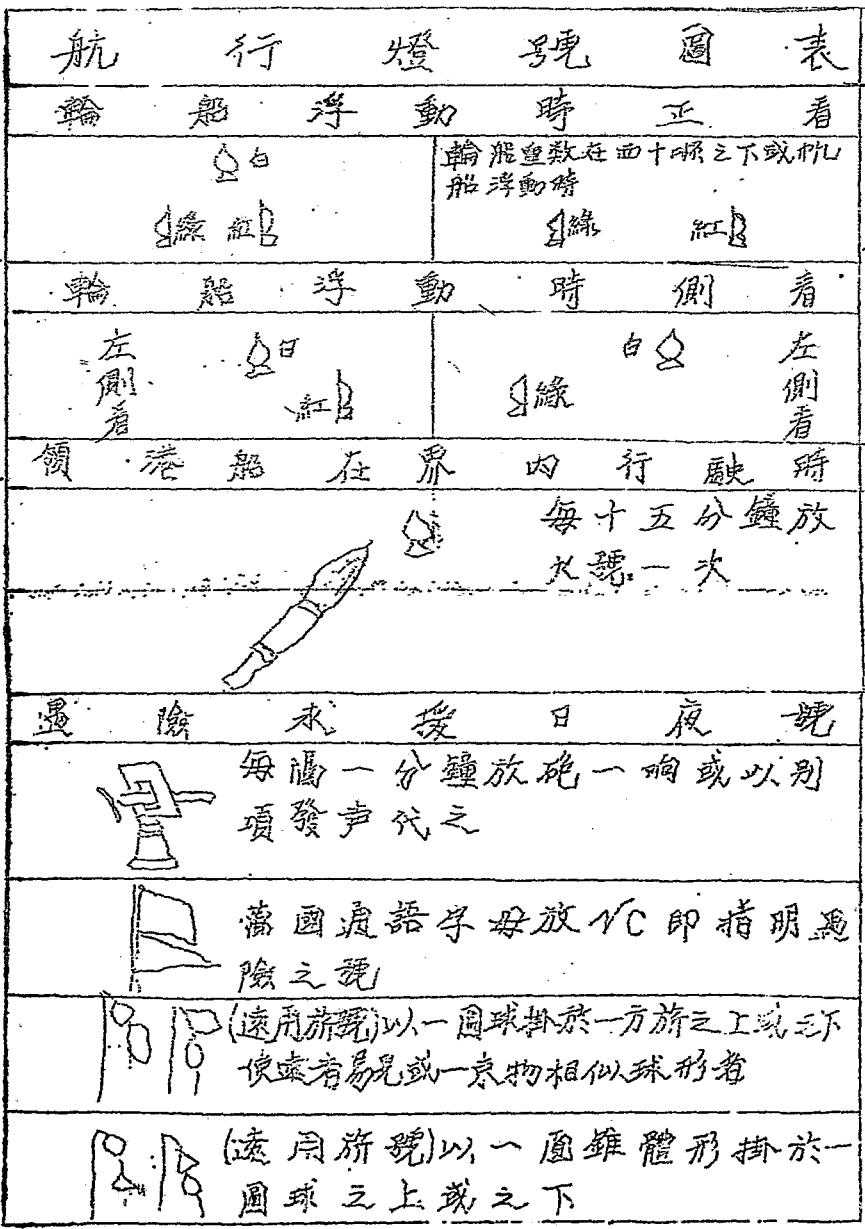 航行燈號圖表
輪船浮動時正看
白
綠 紅
輪船重数在四十順之下或帆
船浮動時
綠 紅
輪船浮動時側看
左側看
白
紅
白
綠
左側看
領港船在界内行駛時
每十五分鐘放
火號一次
遇險求援日夜號
每隔一分鐘放砲一响或以别
項發声代之
萬國通語字母放NC即指明遇
險之號
(遠用旂號)以一圓球掛於一方旂之上或之下
使遠者易見或一京物相似球形者
(遠用旂號)以一圓錐體形掛於一
圓球之上或之下